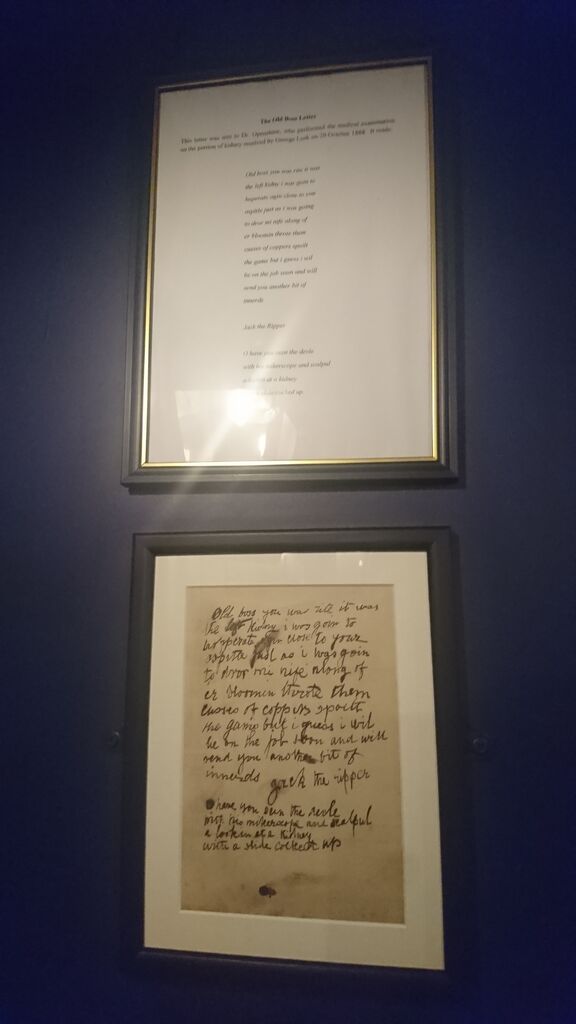 The Old Boss Letter
This letter was sent to Dr. Openshaw, who performed the medical examination
on the portion of kidney received by George Lusk on 29 October 1888. It reads:
Old boss you was rite it was
the left kidny i was goin to
hoperate agin close to you
ospitle just as i was going
to dror mi nife along of
er bloomin throte them
cusses of coppers spoilt
the game but i guess i wil
be on the job soon and will
send you another bit of
innerds
Jack the Ripper
O have you seen the devle
with his mikerscope and scalpul
a lookin at a kidney
cocked up.
Old boss you was rite it was
the left kidny i was goin to
hoperate agin close to your
ospitle just as i was goin
to dror mi nife along of
er bloomin throte them
cusses of coppers spoilt
the game but i guess i wil
be on the job soon and will
send you another bit of
innerds Jack the ripper
O have you seen the devle
with his mikerscope and scalpul
a lookin at a Kidney
with a slide cocked up